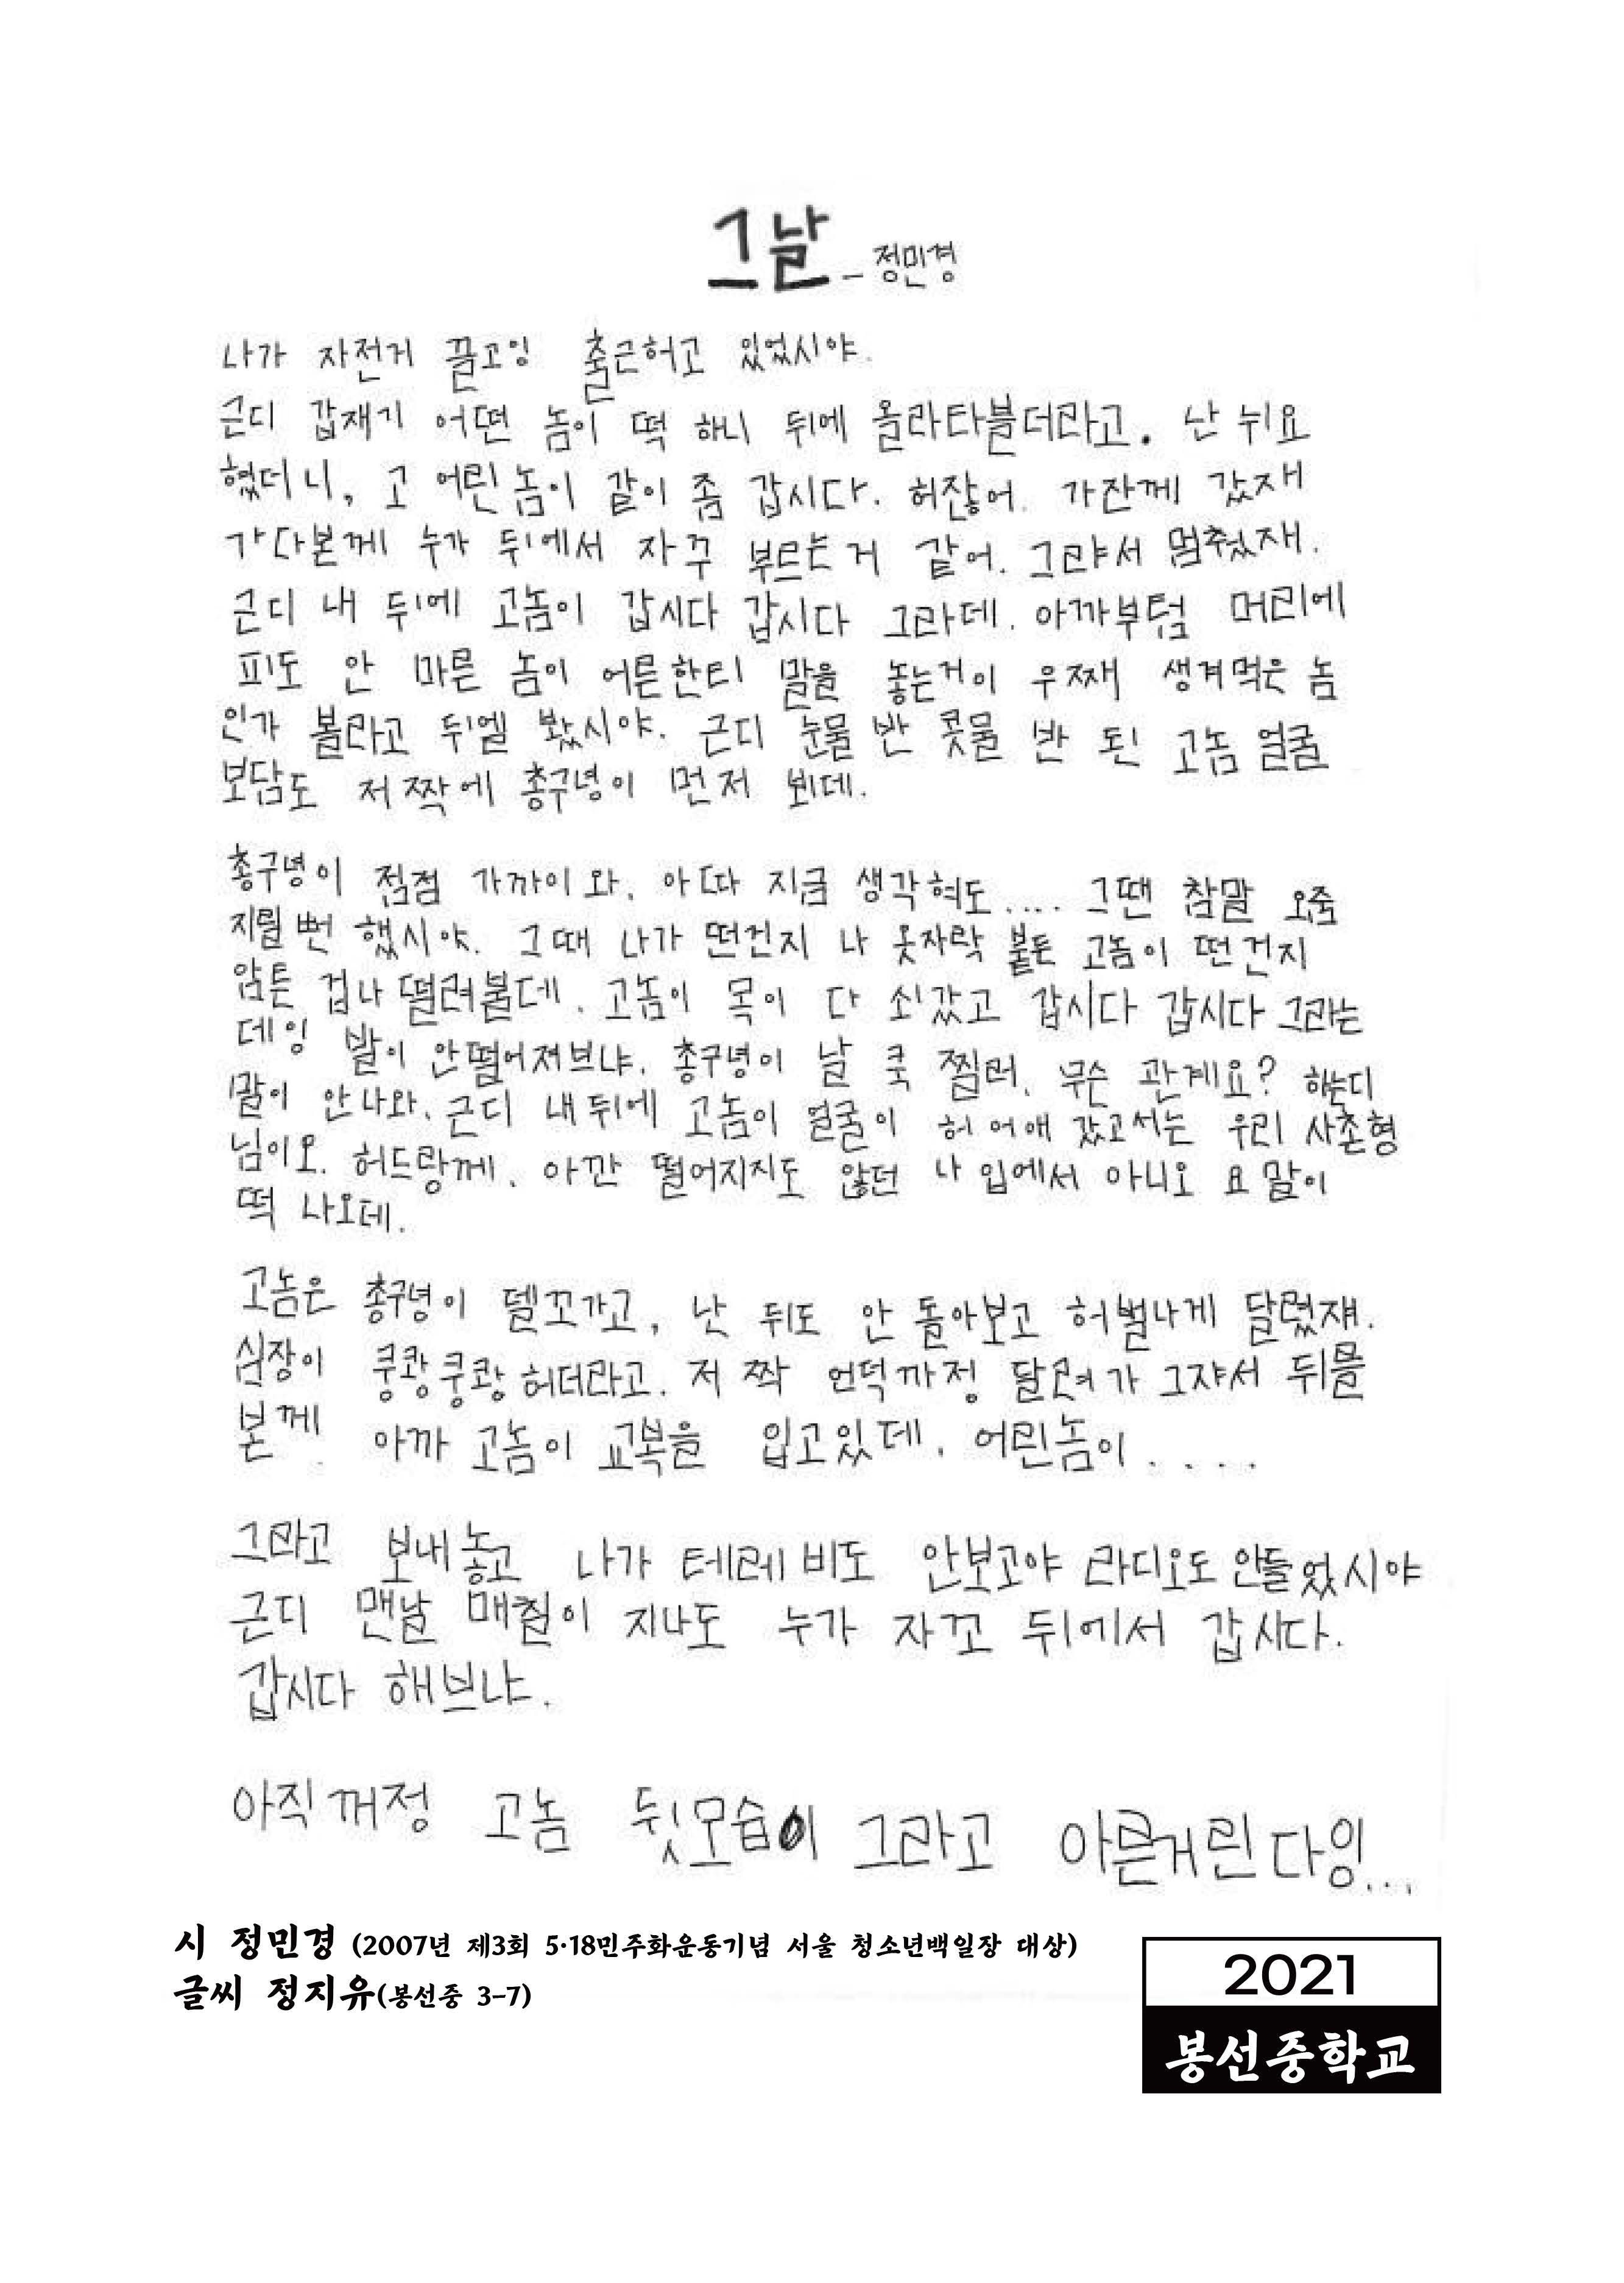 그날 - 정민경
나가 자전거 끌고잉 출근허고 있었시야.
근디 갑재기 어떤 놈이 떡 하니 뒤에 올라타블더라고. 난 뉘요
혔더니, 고 어린 놈이 같이 좀 갑시다. 허잖어. 가잔께 갔재
가다본께 누가 뒤에서 자꾸 부르는거 같어. 그랴서 멈췄재.
근디 내 뒤에 고놈이 갑시다 갑시다 그라데. 아까부텀 머리에
피도 안 마른 놈이 어른한티 말을 놓는거이 우째 생겨먹은 놈
인가 볼라고 뒤엘 봤시야. 근디 눈물 반 콧물 반 된 고놈 얼굴
보담도 저짝에 총구녕이 먼저 뵈데.
총구녕이 점점 가까이 와. 아따 지금 생각혀도.... 그땐 참말 오줌
지릴 뻔 했시야. 그때 나가 떤건지 나 옷자락 붙든 고놈이 떤건지
암튼 겁나 떨려붐데. 고놈이 목이 다 쇠갔고 갑시다 갑시다 그라는
데잉 발이 안떨어져브냐. 총구녕이 날 쿡 찔러. 무슨 관계요? 하는디
말이 안나와. 근디 내 뒤에 고놈이 얼굴이 허어애 갔고서는 우리 사촌형
님이오. 허드랑께. 아깐 떨어지지도 않던 나 입에서 아니오 요 말이
떡 나오데.
고놈은 총구녕이 델꼬가고, 난 뒤도 안 돌아보고 허벌나게 달렸쟤.
심장이 쿵쾅쿵쾅 허더라고. 저 짝 언덕까정 달려가 그쟈서 뒤를
본께 아까 고놈이 교복을 입고있데. 어린놈이....
그라고 보내놓고 나가 테레비도 안보고야 라디오도 안들었시야
근디 맨날 매칠이 지나도 누가 자꼬 뒤에서 갑시다.
갑시다 해브냐.
아직꺼정 고놈 뒷모습이 그라고 아른거린다잉...
시 정민경 (2007년 제3회 5·18민주화운동기념 서울 청소년백일장 대상)
글씨 정지유(봉선중 3-7)
2021
봉선중학교